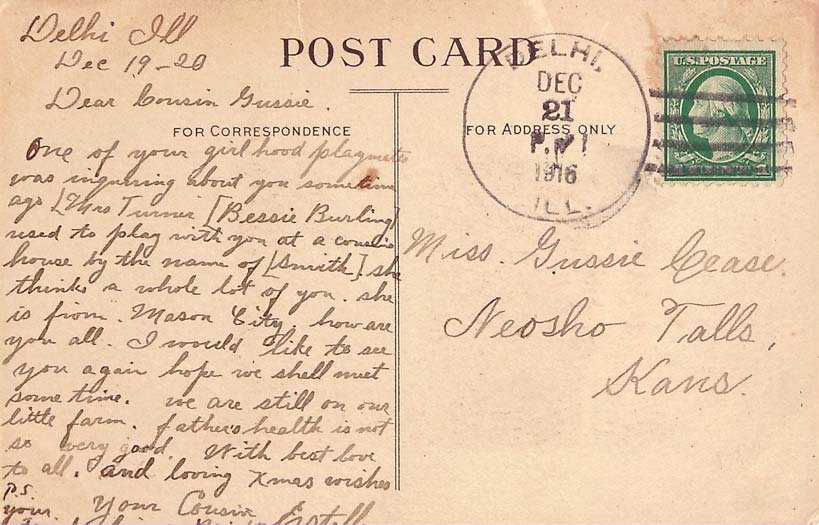 Delhi Ill
Dec 19-20
Dear Cousin Gussie.
POST CARD
FOR CORRESPONDENCE
FOR ADDRESS ONLY
One of your girlhood playmates
was inquiring about you sometime
ago [Mrs Turner [Bessie Burling]
used to play with you at a cousins
house by the name of [Smith] she
thinks a whole lot of you. she
is from. Mason City. how are
you all. I would like to see
you again hope we shell meet
some time. we are still on our
little farm. father's health is not
so very good. With best love
to all. and loving Xmas wishes
P.S.
your Your Cousin Estell
DELHI,
DEC
21
P.M
1916
ILL.
U.S. POSTAGE
Miss. Gussie Cease.
Neosho Falls,
Kans.